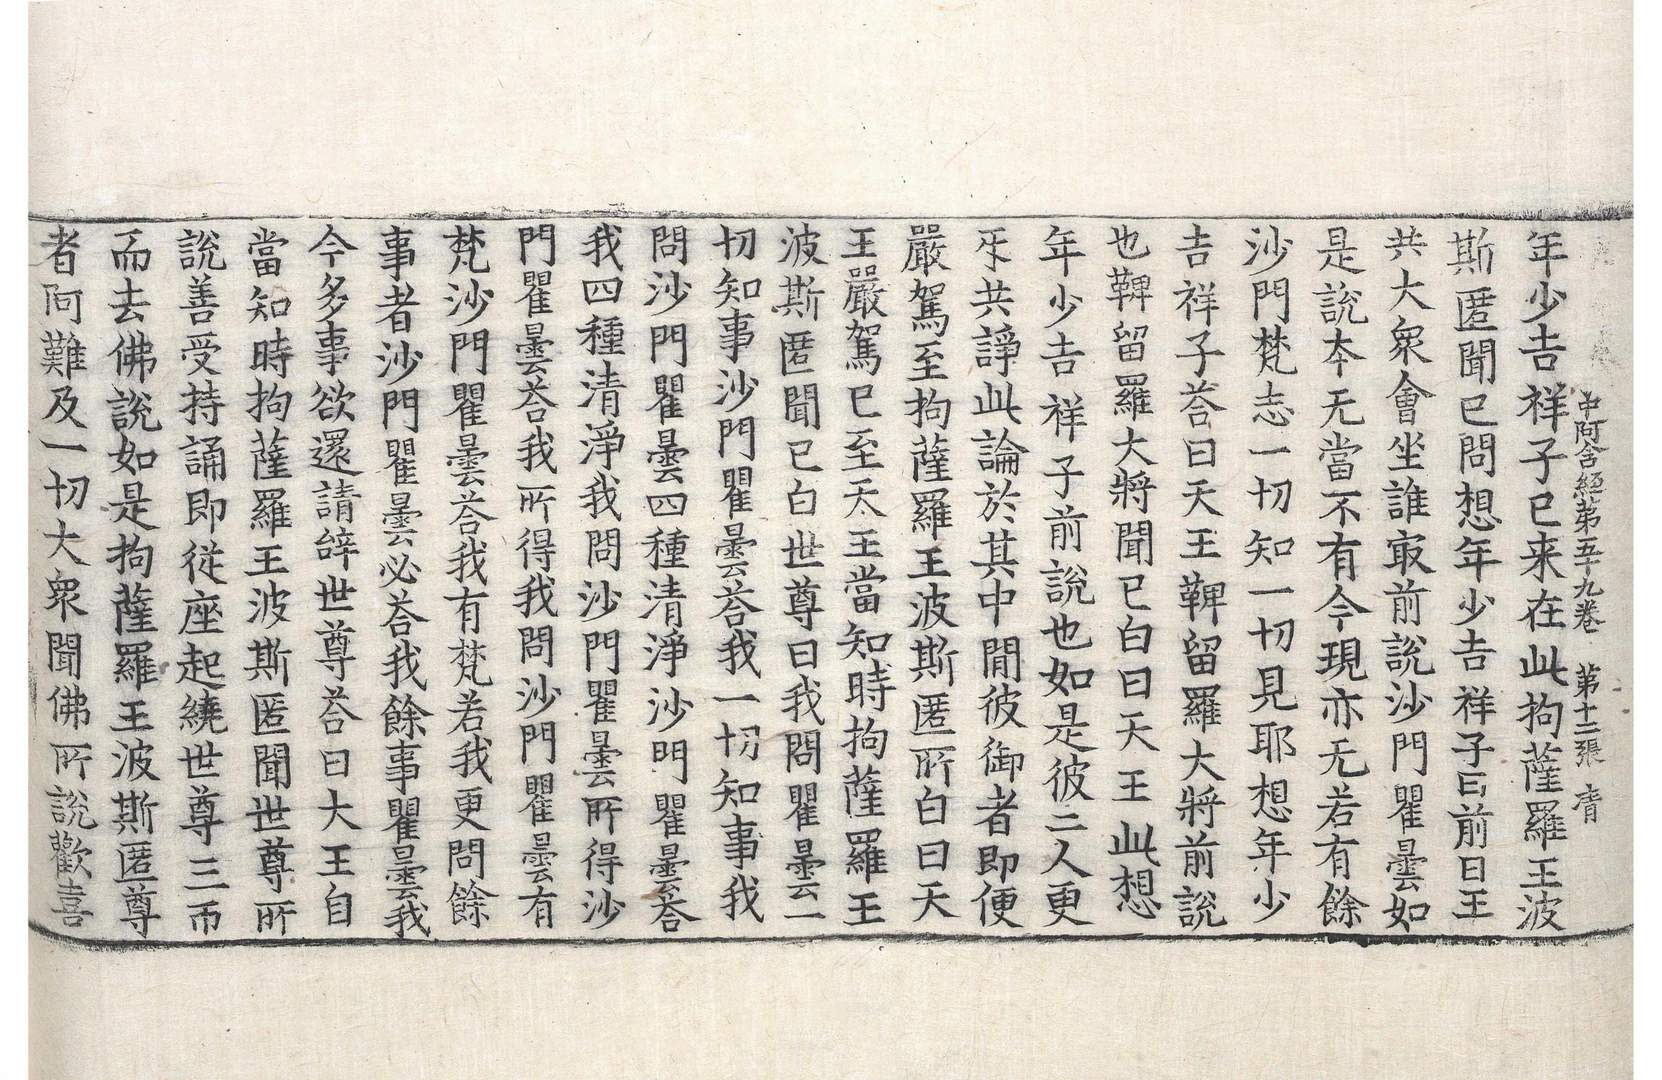 中阿含經第五十九卷 第十二張 青
年少吉祥子已来在此拘薩羅王波
斯匿聞已問想年少吉祥子曰前日王
共大衆會坐誰㝡前說沙門瞿曇如
是說夲无當不有今現亦无若有餘
沙門梵志一切知一切見耶想年少
吉祥子荅曰天王鞞留羅大將前說
也鞞留羅大將聞已白曰天王此想
年少吉祥子前說也如是彼二人更
㸦共諍此論於其中間彼御者即便
嚴駕至拘薩羅王波斯匿所白曰天
王嚴駕已至天王當知時拘薩羅王
波斯匿聞已白世尊曰我問瞿曇一
切知事沙門瞿曇荅我一切知事我
問沙門瞿曇四種清淨沙門瞿曇荅
我四種清淨我問沙門瞿曇所得沙
門瞿曇荅我所得我問沙門瞿曇有
梵沙門瞿曇荅我有梵若我更問餘
事者沙門瞿曇必荅我餘事瞿曇我
今多事欲還請辝世尊荅曰大王自
當知時拘薩羅王波斯匿聞世尊所
說善受持誦即從座起繞世尊三帀
而去佛說如是拘薩羅王波斯匿尊
者阿難及一切大衆聞佛所說歡喜